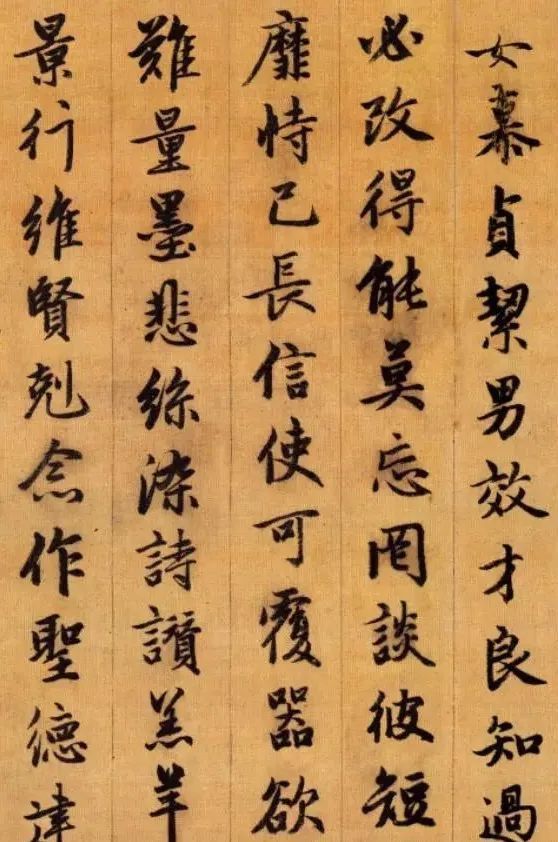 女慕貞絜男效才良知過
必改得能莫忘罔談彼短
靡恃己長信使可覆器欲
難量墨悲絲染詩讚羔羊
景行維賢剋念作聖德建